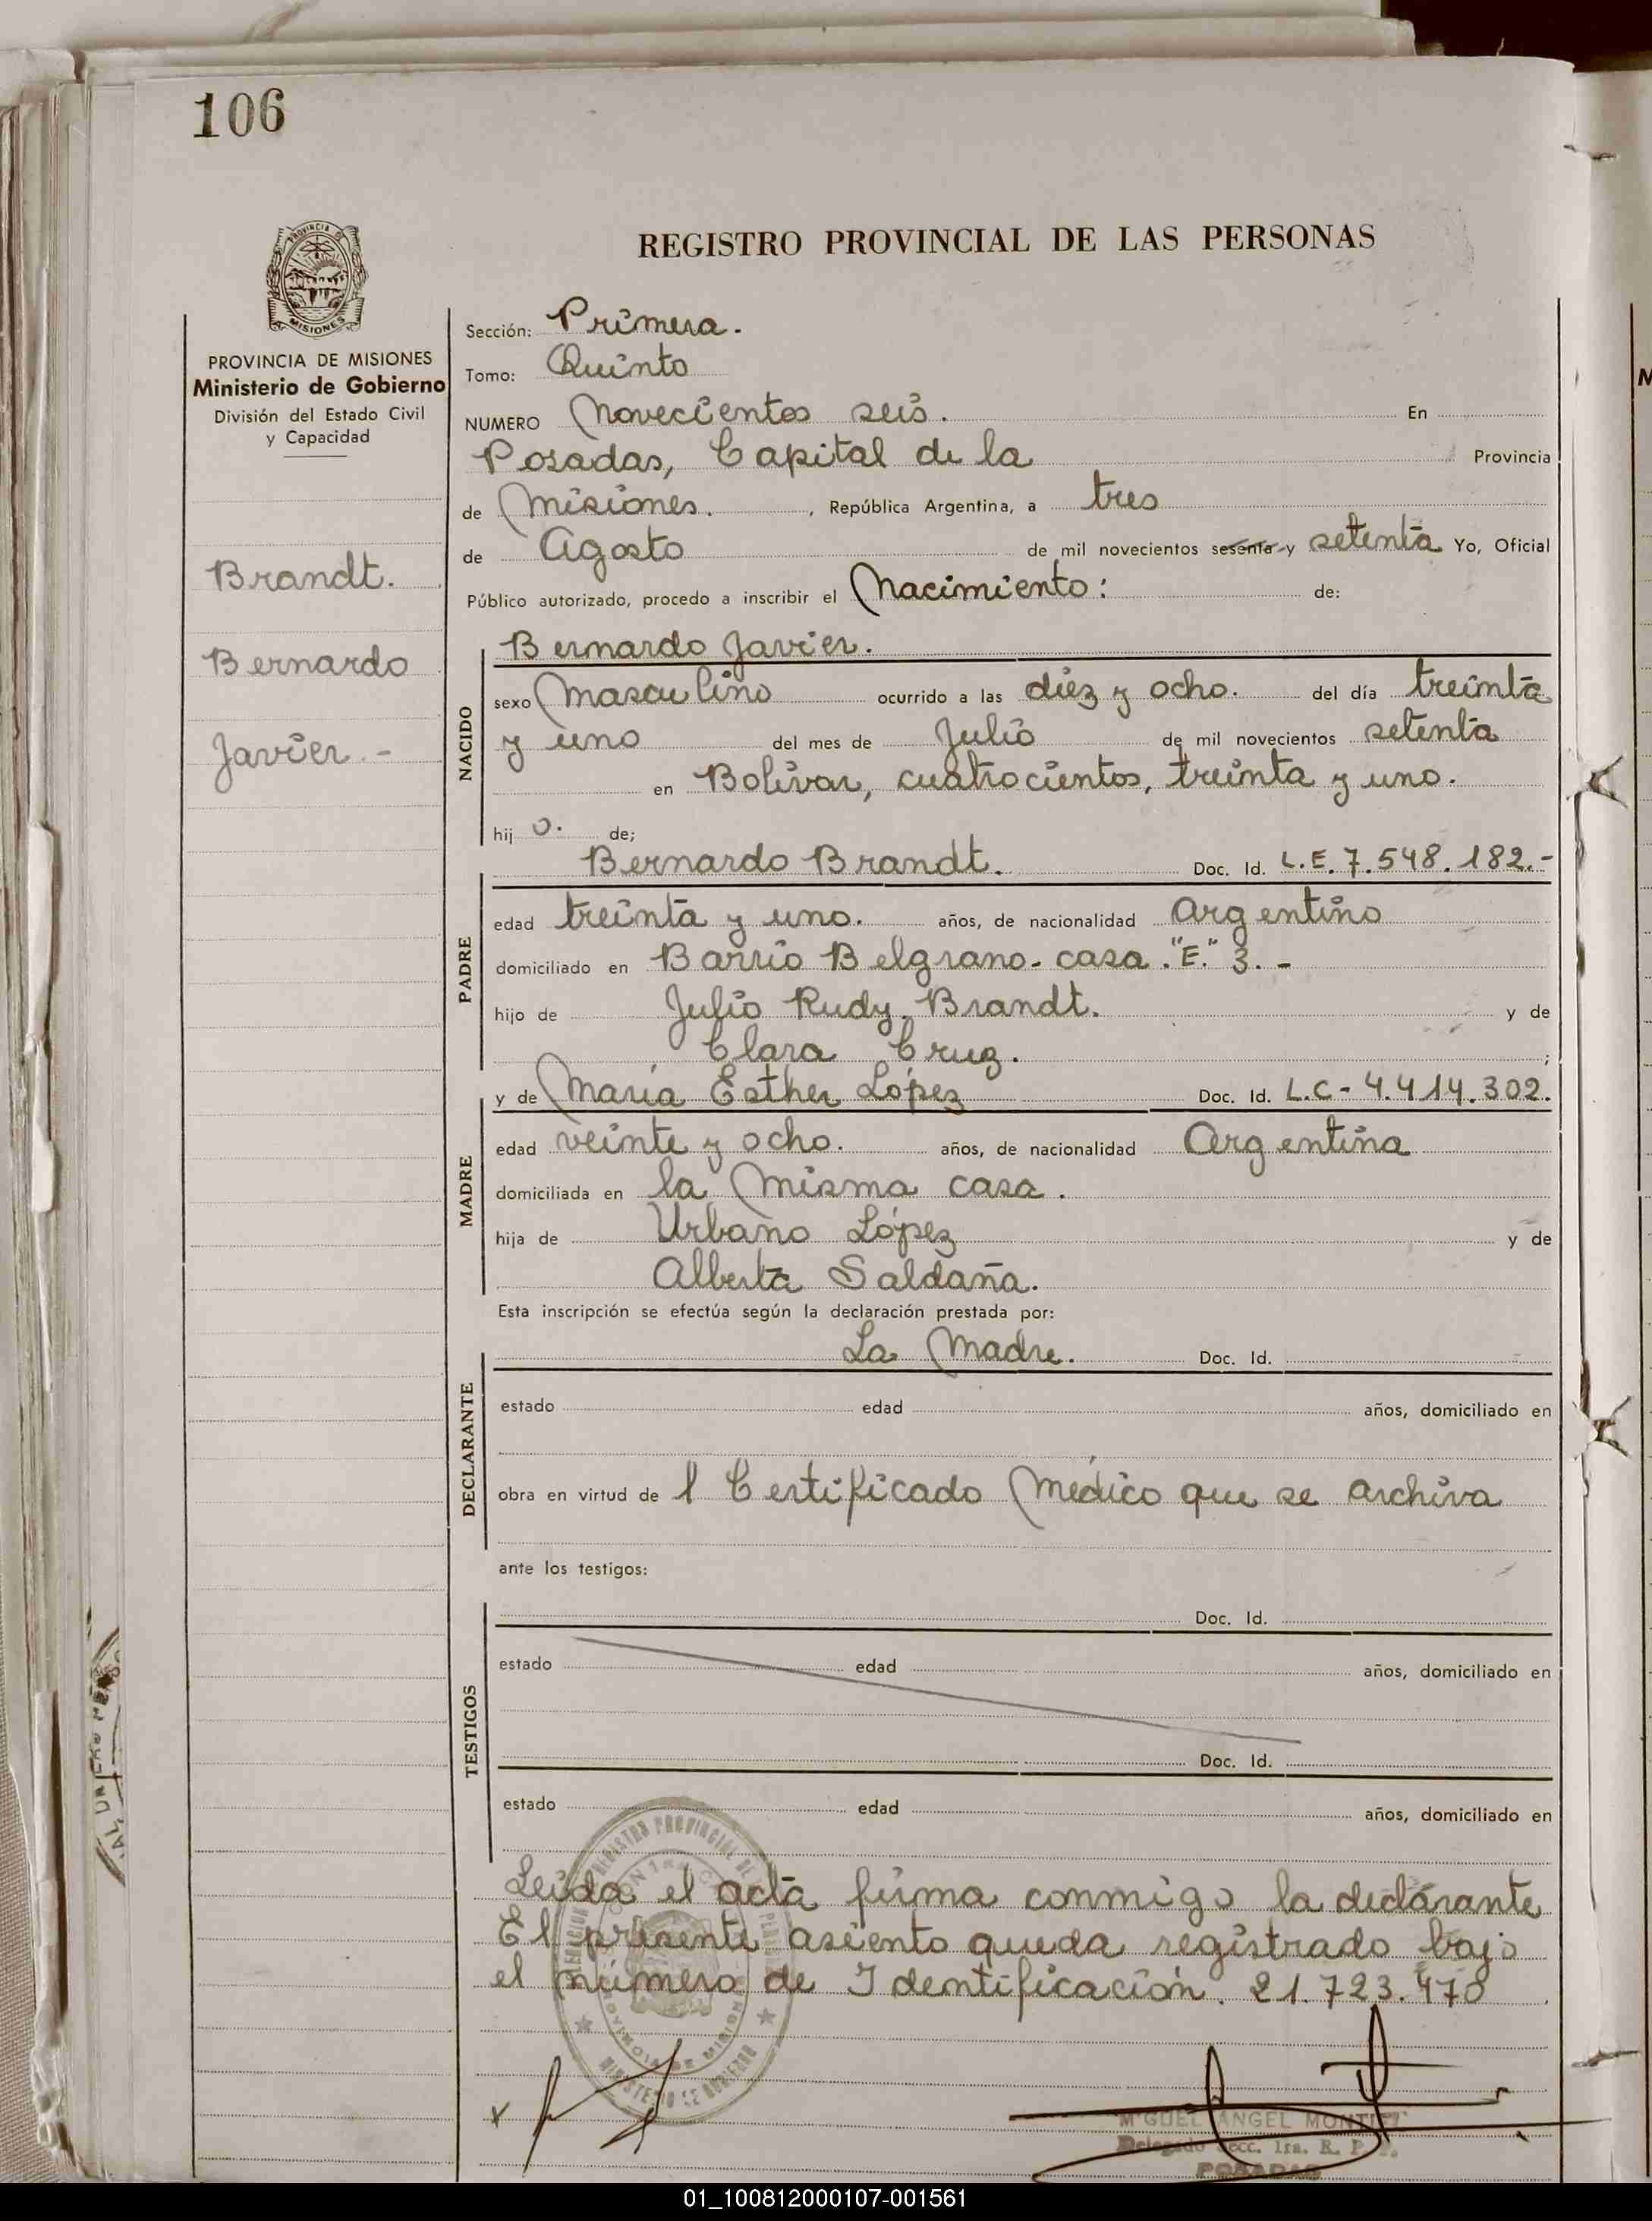 106
PROVINCIA DE MISIONES
MISIONES
PROVINCIA DE MISIONES
Ministerio de Gobierno
División del Estado Civil
y Capacidad
Brandt.
Bernardo
Javier.-
REGISTRO PROVINCIAL DE LAS PERSONAS
Sección: Primera.
Tomo: Quinto
NUMERO Novecientos seis. En
Posadas, Capital de la Provincia
de Misiones. , República Argentina, a tres
de Agosto de mil novecientos sesenta y setenta Yo, Oficial
Público autorizado, procedo a inscribir el Nacimiento: de:
Bernardo Javier.
NACIDO
sexo Masculino ocurrido a las diez y ocho. del día treinta
y uno del mes de Julio de mil novecientos setenta
en Bolívar, cuatrocientos, treinta y uno.
hij o. de;
Bernardo Brandt. Doc. Id. L.E. 7.548.182.-
PADRE
edad treinta y uno. años, de nacionalidad Argentino
domiciliado en Barrio Belgrano- casa "E." 3.-
hijo de Julio Rudy Brandt. y de
Clara Cruz. ;
y de María Esther López Doc. Id. L.C- 4.414.302.
MADRE
edad veinte y ocho. años, de nacionalidad Argentina
domiciliada en la misma casa.
hija de Urbano López y de
Alberta Saldaña.
Esta inscripción se efectúa según la declaración prestada por:
La Madre. Doc. Id.
DECLARANTE
estado edad años, domiciliado en
obra en virtud de l Certificado Médico que se archiva
ante los testigos:
Doc. Id.
TESTIGOS
estado edad años, domiciliado en
Doc. Id.
estado edad años, domiciliado en
Leída el acta firma conmigo la declarante
El presente asiento queda registrado bajo
el número de Identificación. 21.723.470
REGISTRO PROVINCIAL DE
MINISTERIO DE GOBIERNO
MIGUEL ANGEL
Delegado Secc. 1ra. R. P.
POSADAS
01_100812000107-001561